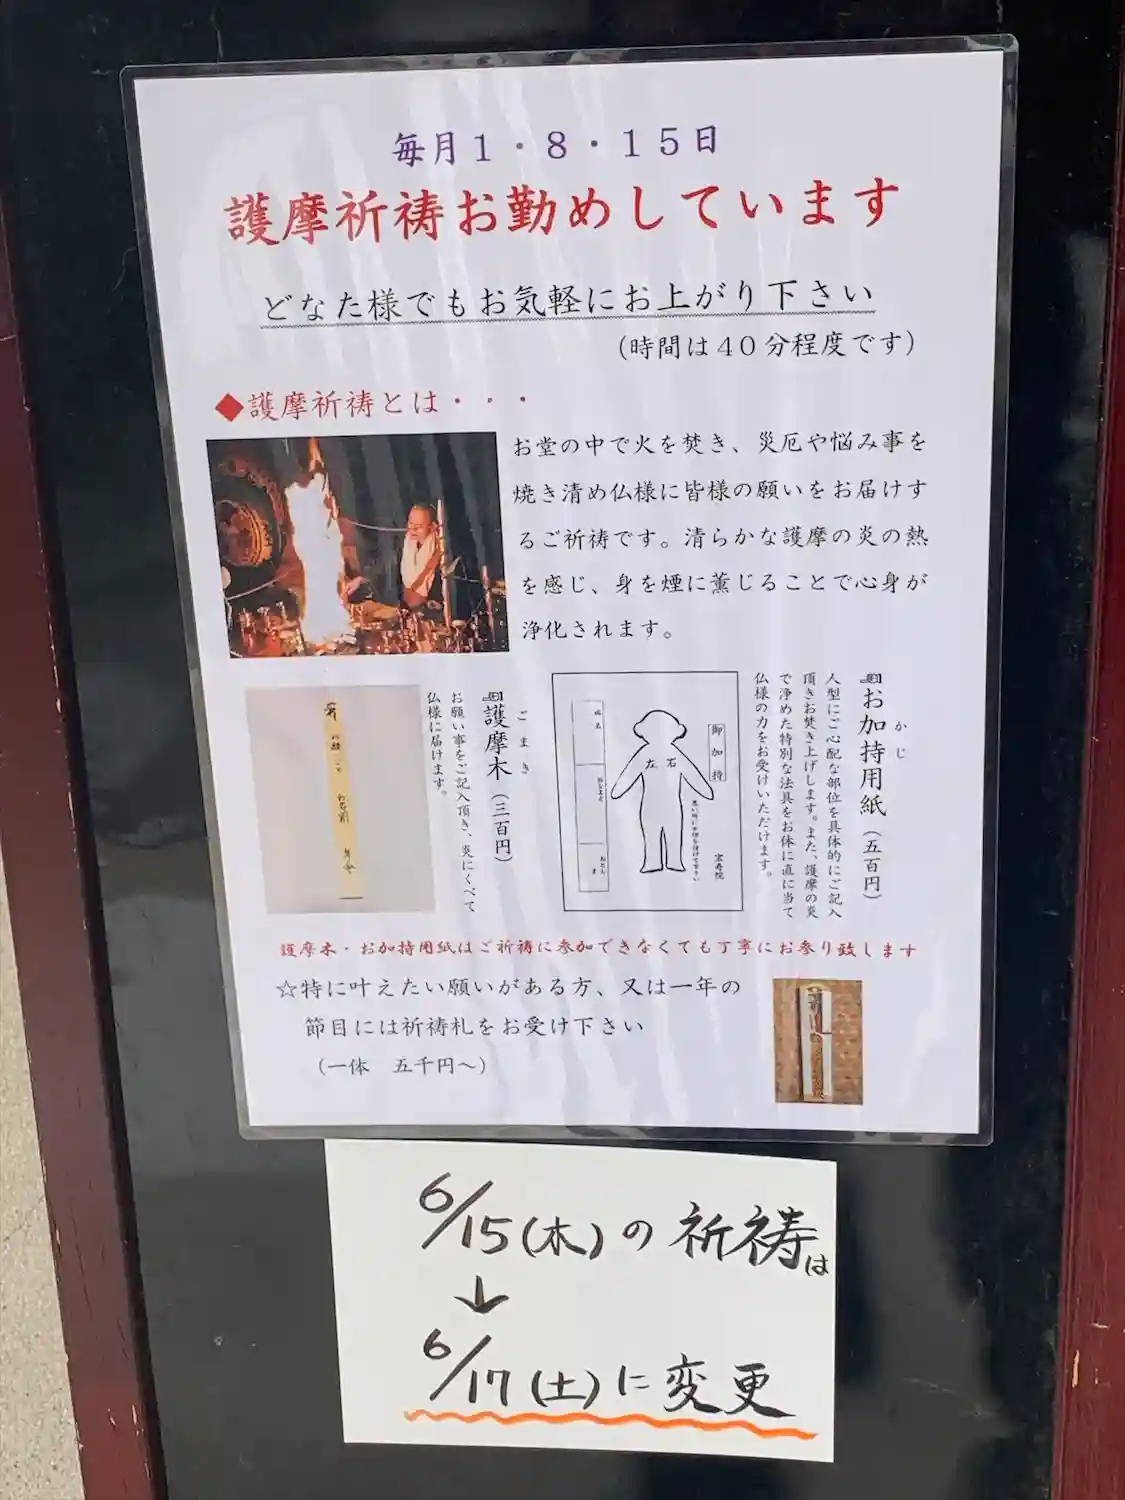 毎月１・８・１５日
護摩祈祷お勤めしています
どなた様でもお気軽にお上がり下さい
（時間は４０分程度です）
◆護摩祈祷とは・・・
お堂の中で火を焚き、災厄や悩み事を
焼き清め仏様に皆様の願いをお届けす
るご祈祷です。清らかな護摩の炎の熱
を感じ、身を煙に薫じることで心身が
浄化されます。
お加持用紙（五百円）
かじ
人型にご心配な部位を具体的にご記入
頂きお焚き上げします。また、護摩の炎
で浄めた特別な法具をお体に直に当て
仏様の力をお受けいただけます。
御加持
右
左
宝寿院
氏名
護摩木（三百円）
ごまき
お願い事をご記入頂き、炎にくべて
仏様に届けます。
護摩木・お加持用紙はご祈祷に参加できなくても丁寧にお参り致します
☆特に叶えたい願いがある方、又は一年の
節目には祈祷札をお受け下さい
（一体　五千円～）
6/15(木)の祈祷は
↓
6/17(土)に変更